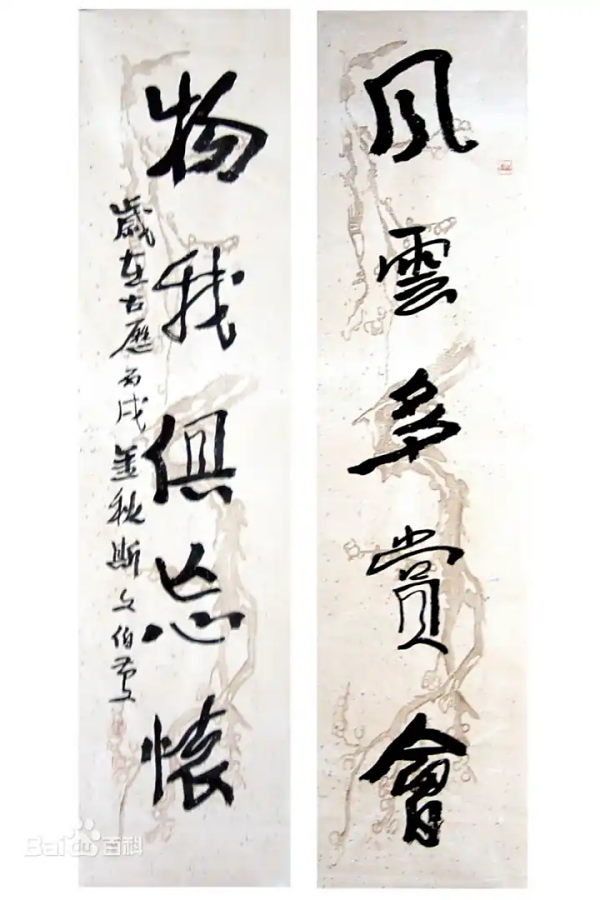 風雲多賞會
物我俱忘懷
歲在古歷丙戌金秋斯文伯
Baidu百科